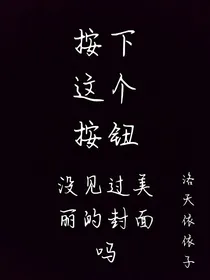 按下
这个
按钮
没见过美
丽的封面
吗
洛天依依子